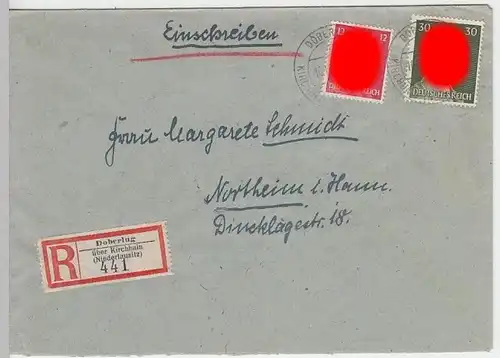 Einschreiben
12 12
DEUTSCHES REICH
30 30
DEUTSCHES REICH
Frau Margarete Schmidt
Northeim i. Hann.
Dincklagestr. 18.
R
Doberlug
über Kirchhain
(Niederlausitz)
441